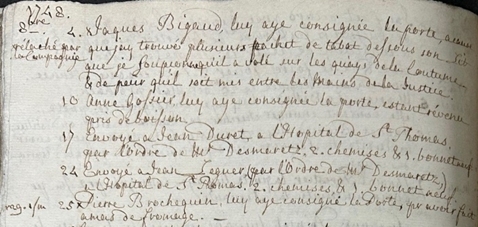 1748.
8bre
4. Jaques Bigaud, luy aye consignée la porte, a cause
relaché par que jay trouvé plusieurs paicnet de tabat dessous son
la Compagnie que je soupconne quil a volé sur les quay, de la Coutume
& de peur quil soit mis entre les mains de la Justice.
10 Anne Gossier, luy aye consignée la porte, estant révenu
pris de boisson.
17 Envoyé a Jean Duret, a l'Hopital de St Thomas,
par l'ordre de Mr Desmaretz, 2 chemises & 1 bonnet neuf
24 Envoyé a Jean Leguer (par l'Ordre de Mr Desmaretz)
l'Hopital de St Tomas, 2 chemises, & 1 bonnet neuf.
25 Pierre Brochequin, luy aye consigné la Porte, qui avoit fait
amas de fromage.